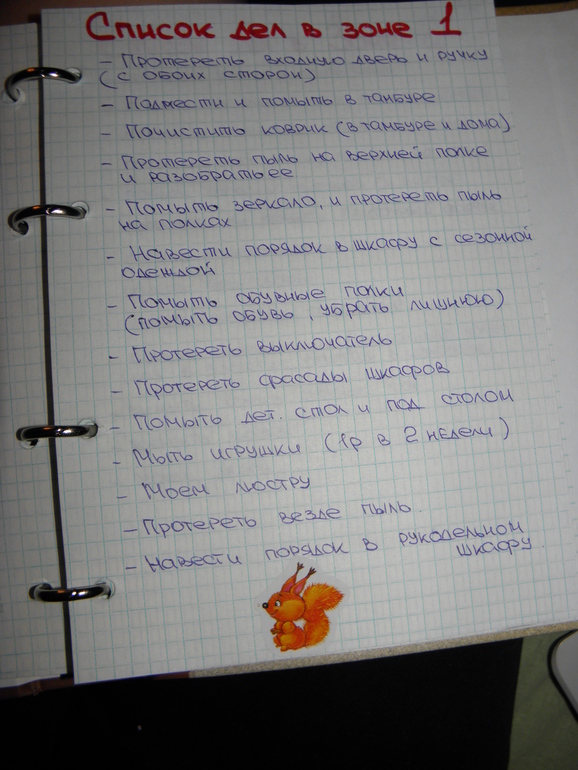 Список дел в зоне 1
- Протереть входную дверь и ручку
(с обоих сторон)
- Подмести и помыть в тамбуре
- Почистить коврик (в тамбуре и дома)
- Протереть пыль на верхней полке
и разобрать ее
- Помыть зеркало, и протереть пыль
на полках
- Навести порядок в шкафу с сезонной
одеждой
- Помыть обувные полки
(помыть обувь, убрать лишнюю)
- Протереть выключатель
- Протереть фасады шкафов
- Помыть дет. стол и под столом
- Мыть игрушки (1р в 2 недели)
- Моем люстру
- Протереть везде пыль.
- Навести порядок в рукодельном
шкафу.